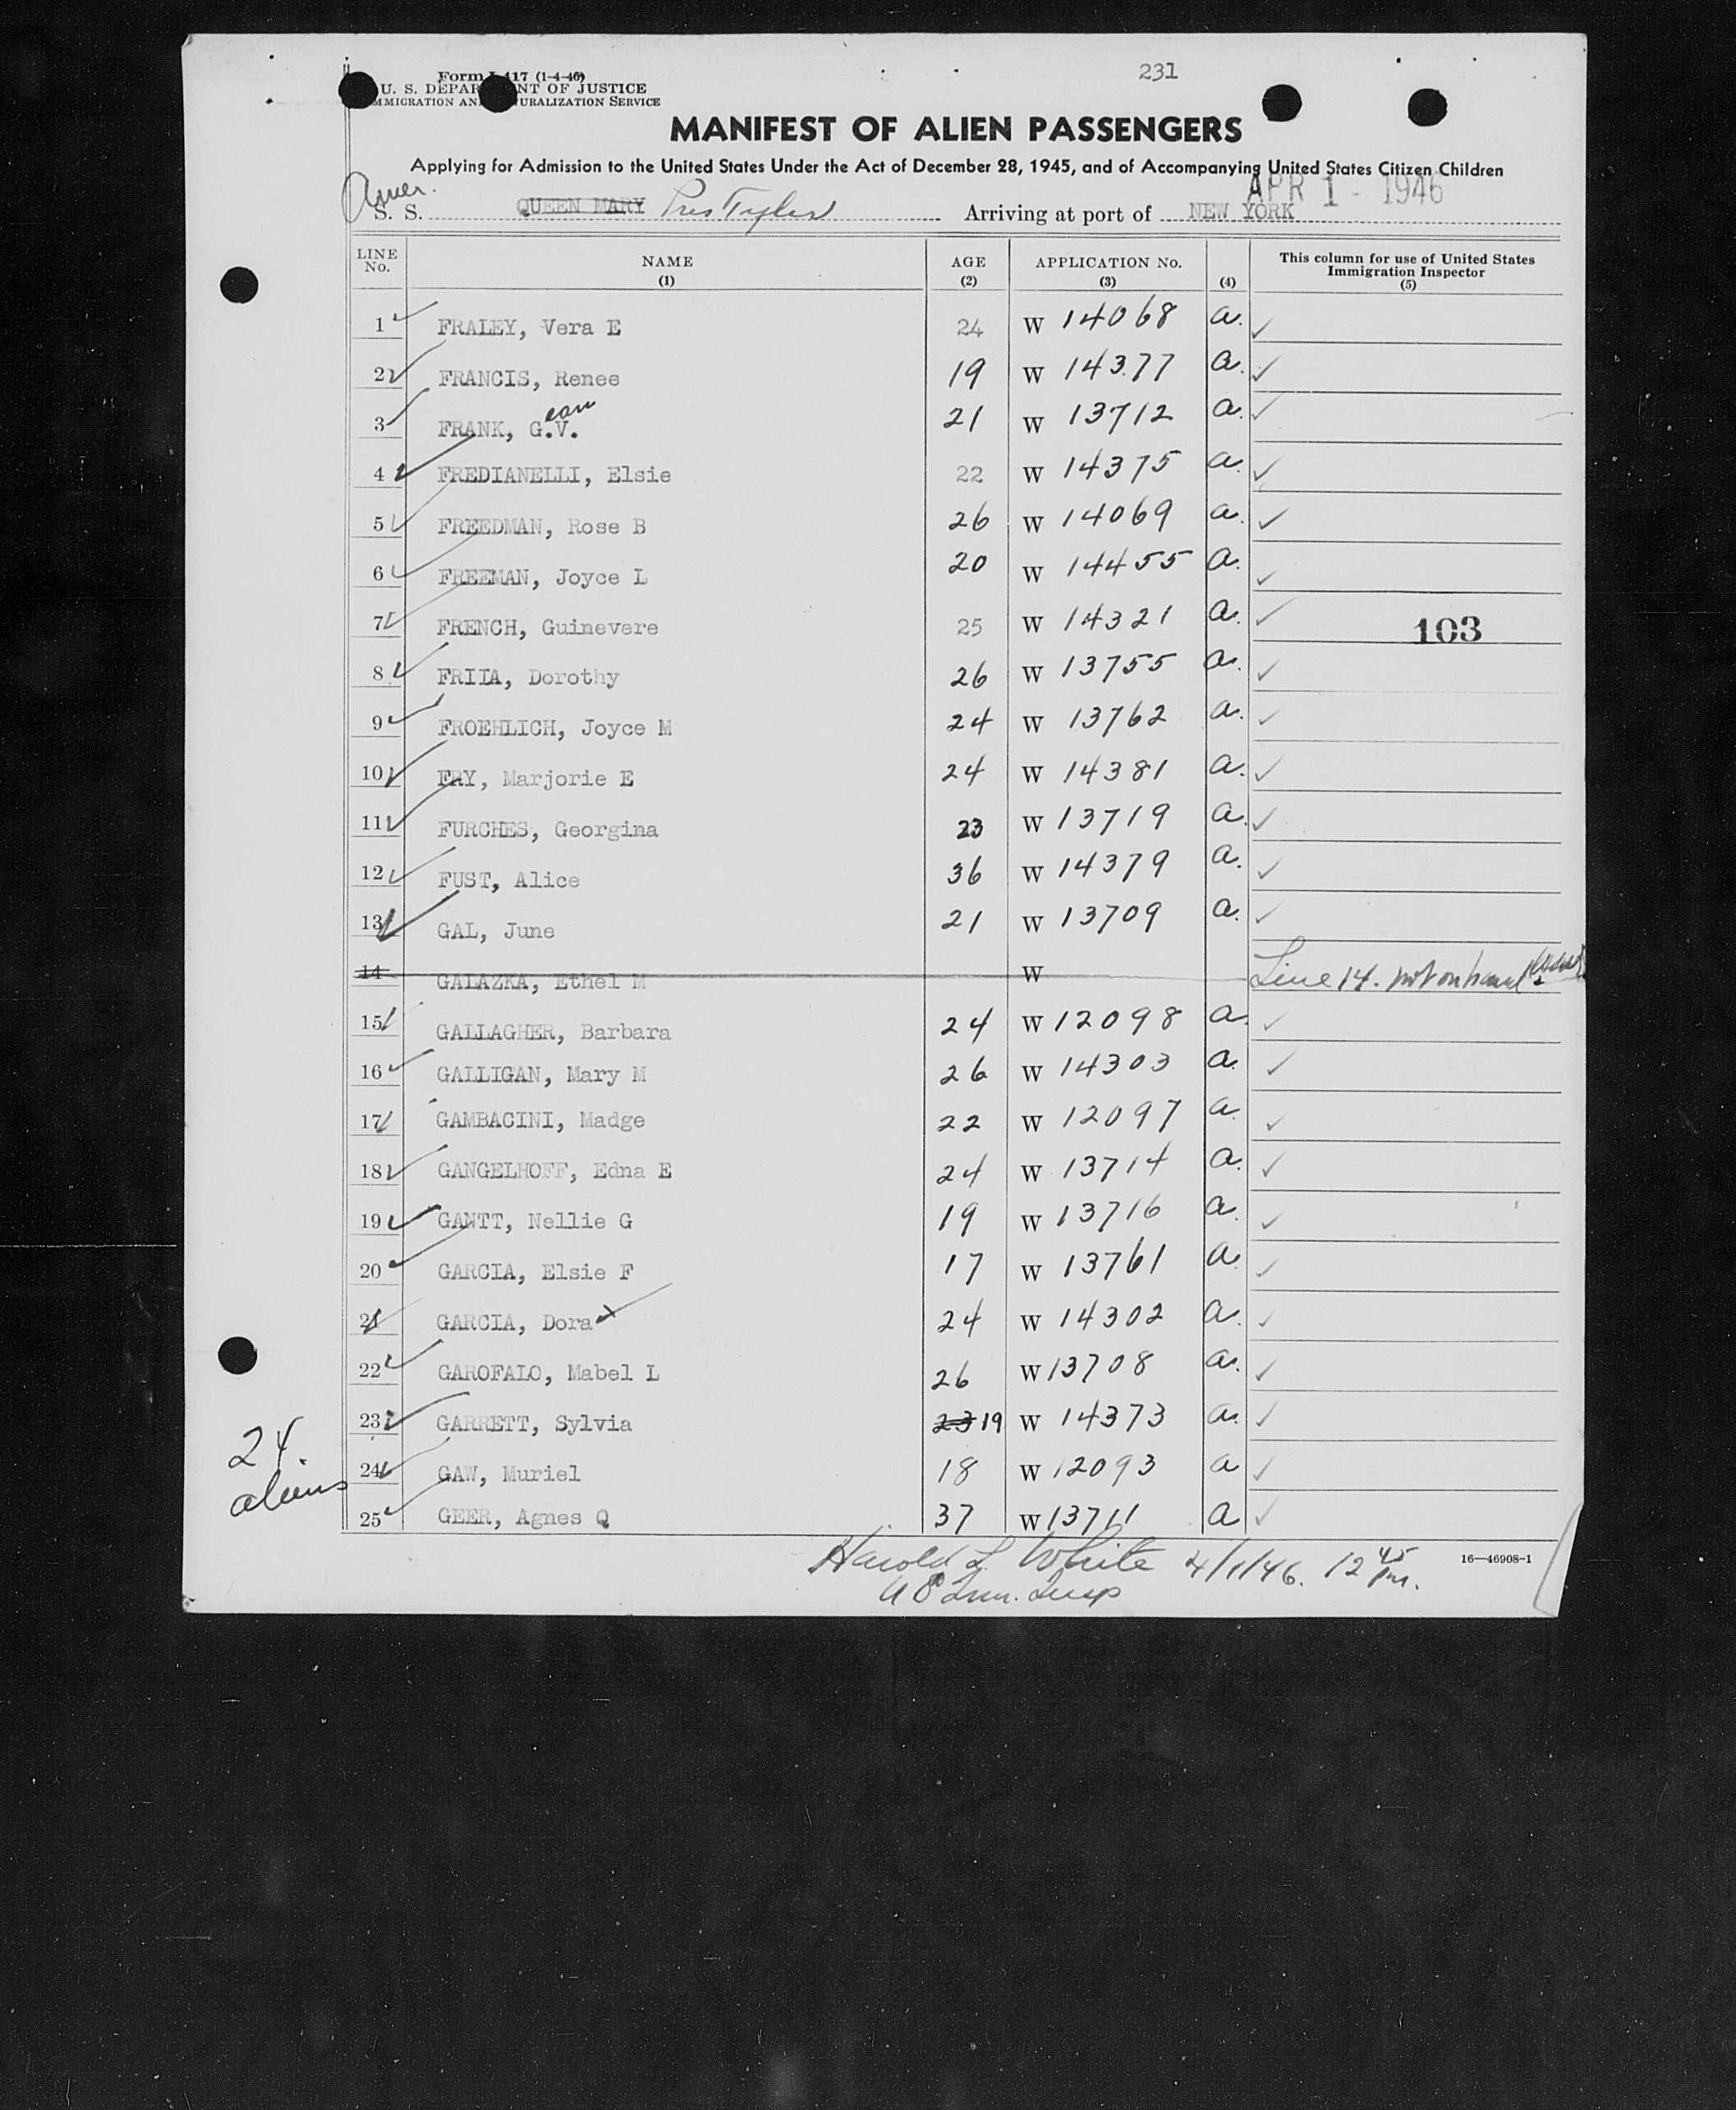 231
Form I-417 (1-4-46)
U. S. DEPARTMENT OF JUSTICE
IMMIGRATION AND NATURALIZATION SERVICE
MANIFEST OF ALIEN PASSENGERS
Applying for Admission to the United States Under the Act of December 28, 1945, and of Accompanying United States Citizen Children
APR 1 - 1946
Amer.
S. S. QUEEN MARY Pres Tyler Arriving at port of NEW YORK
LINE No. NAME (1) AGE (2) APPLICATION No. (3) (4) This column for use of United States Immigration Inspector (5)
1 FRALEY, Vera E 24 W 14068 a.
2 FRANCIS, Renee 19 W 14377 a.
3 FRANK, G.V. ean 21 W 13712 a.
4 FREDIANELLI, Elsie 22 W 14375 a.
5 FREEDMAN, Rose B 26 W 14069 a.
6 FREEMAN, Joyce L 20 W 14455 a.
7 FRENCH, Guinevere 25 W 14321 a.
103
8 FRITA, Dorothy 26 W 13755 a.
9 FROEHLICH, Joyce M 24 W 13762 a.
10 FRY, Marjorie E 24 W 14381 a.
11 FURCHES, Georgina 23 W 13719 a.
12 FUST, Alice 36 W 14379 a.
13 GAL, June 21 W 13709 a.
14 GALAZKA, Ethel M W Line 14. not on board
15 GALLAGHER, Barbara 24 W 12098 a.
16 GALLIGAN, Mary M 26 W 14303 a.
17 GAMBACINI, Madge 22 W 12097 a.
18 GANGELHOFF, Edna E 24 W 13714 a.
19 GANTT, Nellie G 19 W 13716 a.
20 GARCIA, Elsie F 17 W 13761 a.
21 GARCIA, Dora x 24 W 14302 a.
22 GAROFALO, Mabel L 26 W 13708 a.
23 GARRETT, Sylvia 23 19 W 14373 a.
24 GAW, Muriel 18 W 12093 a
25 GEER, Agnes Q 37 W 13711 a
24. aliens
Harold L. White 4/1/46. 12 45 pm.
US Imm. Insp
16—46908-1